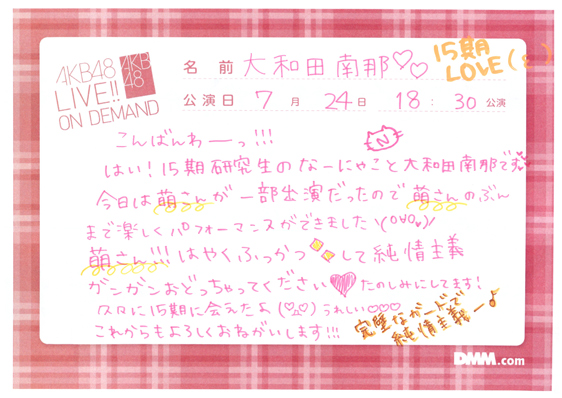 AKB48
LIVE!!
ON DEMAND
AKB48
名前 大和田南那♡♡
15期
LOVE(:)
公演日 7月 24日 18:30公演
こんばんわーっ!!!
はい!15期研究生のなーにゃこと大和田南那です
今日は萌さんが一部出演だったので萌さんのぶん
まで楽しくパフォーマンスができました\(^o^)/
萌さん!!!はやくふっかつして純情主義
ガンガンおどっちゃってください♥たのしみにしてます!
久々に15期に会えたよ(♡△♡)うれしい♡♡♡
これからもよろしくおねがいします!!!
完璧なガードで
純情主義ー♪
DMM.com